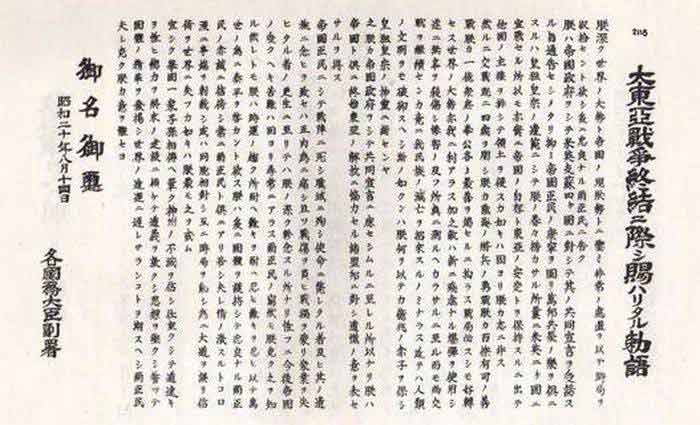 大東亞戰爭終結ニ際シ賜ハリタル勅語
朕深ク世界ノ大勢ト帝國ノ現狀トニ鑑ミ非常ノ措置ヲ以テ時局ヲ
收拾セント欲シ茲ニ忠良ナル爾臣民ニ告ク
朕ハ帝國政府ヲシテ米英支蘇四ケ國ニ對シ其ノ共同宣言ヲ受諾ス
ル旨通告セシメタリ抑〻帝國臣民ノ康寧ヲ圖リ萬邦共榮ノ樂ヲ偕ニ
スルハ皇祖皇宗ノ遺範ニシテ朕ノ拳々措カサル所曩ニ米英二國ニ
宣戰セル所以モ亦實ニ帝國ノ自存ト東亞ノ安定トヲ スルニ出テ
他國ノ主權ヲ排シ領土ヲ侵スカ如キハ固ヨリ朕カ志ニ非ス
然ルニ交戰已ニ四歲ヲ閱シ朕カ陸海將兵ノ勇戰朕カ百僚有司ノ
朕カ一億衆庶ノ奉公各〻最善ヲ盡セルニ拘ラス戰局必スシモ好轉
セス世界ノ大勢亦我ニ利アラス加之敵ハ新ニ殘虐ナル爆彈ヲ使用シ
無辜ヲ殺傷シ慘害ノ及フ所眞ニ測ルヘカラサルニ至ル而モ尚交
戰ヲ繼續センカ 我民族ノ滅亡ヲ招來スルノミナラス 人類
ノ文明ヲモ破却スヘシ斯ノ如クンハ朕何ヲ以テカ億兆ノ赤子ヲ保シ
皇祖皇宗ノ神靈ニ謝センヤ
之朕カ帝國政府ヲシテ共同宣言ニ應セシムルニ至レル所以ナリ朕ハ
帝國ト俱ニ終始東亞ノ解放ニ協力セル諸盟邦ニ對シ遺憾ノ意ヲ表セ
サルヲ得ス
帝國臣民ニシテ戰陣ニ死シ職域ニ殉シ 命ニ斃レタル者及其ノ遺
族ニ念ヒヲ致セハ五內爲ニ裂ク且ツ戰傷ヲ負ヒ戰禍ヲ蒙リ家業ヲ失
ヒタル者ノ ニ至リテハ朕ノ深ク軫念スル所ナリ惟フニ今後帝國
ノ受クヘキ苦難ハ固ヨリ尋常ニアラス爾臣民ノ衷情モ朕克ク之ヲ知
ル然レトモ朕ハ時運ノ趨ク所耐ヘ難キヲ耐ヘ忍ヒ難キヲ忍ヒ以テ萬
世ノ爲ニ太平ヲ啓カント欲ス朕ハ茲ニ國體ヲ護持シ忠良ナル爾臣
民ノ赤誠ニ信倚シ常ニ爾臣民ト俱ニアリ若シ夫レ情ノ激スルトコロ
濫ニ事端ヲ滋クシ或ハ同胞相對シ互ニ時局ヲ亂シ爲ニ大道ヲ誤リ信
義ヲ世界ニ失フカ如キハ朕最モ之ヲ戒ム
宜シク擧國一家子孫相傳ヘ 神州ノ不滅ヲ信シ任重クシテ道遠キ
ヲ惟ヒ總力ヲ將來ノ建設ニ傾ケ道義ヲ篤クシ志操ヲ鞏クシ誓ツテ
國體ノ精華ヲ發揚シ世界ノ進運ニ遲レサランコトヲ期スヘシ爾臣民
夫レ克ク朕カ意ヲ體セヨ
御名御璽
昭和二十年八月十四日
各國務大臣副署